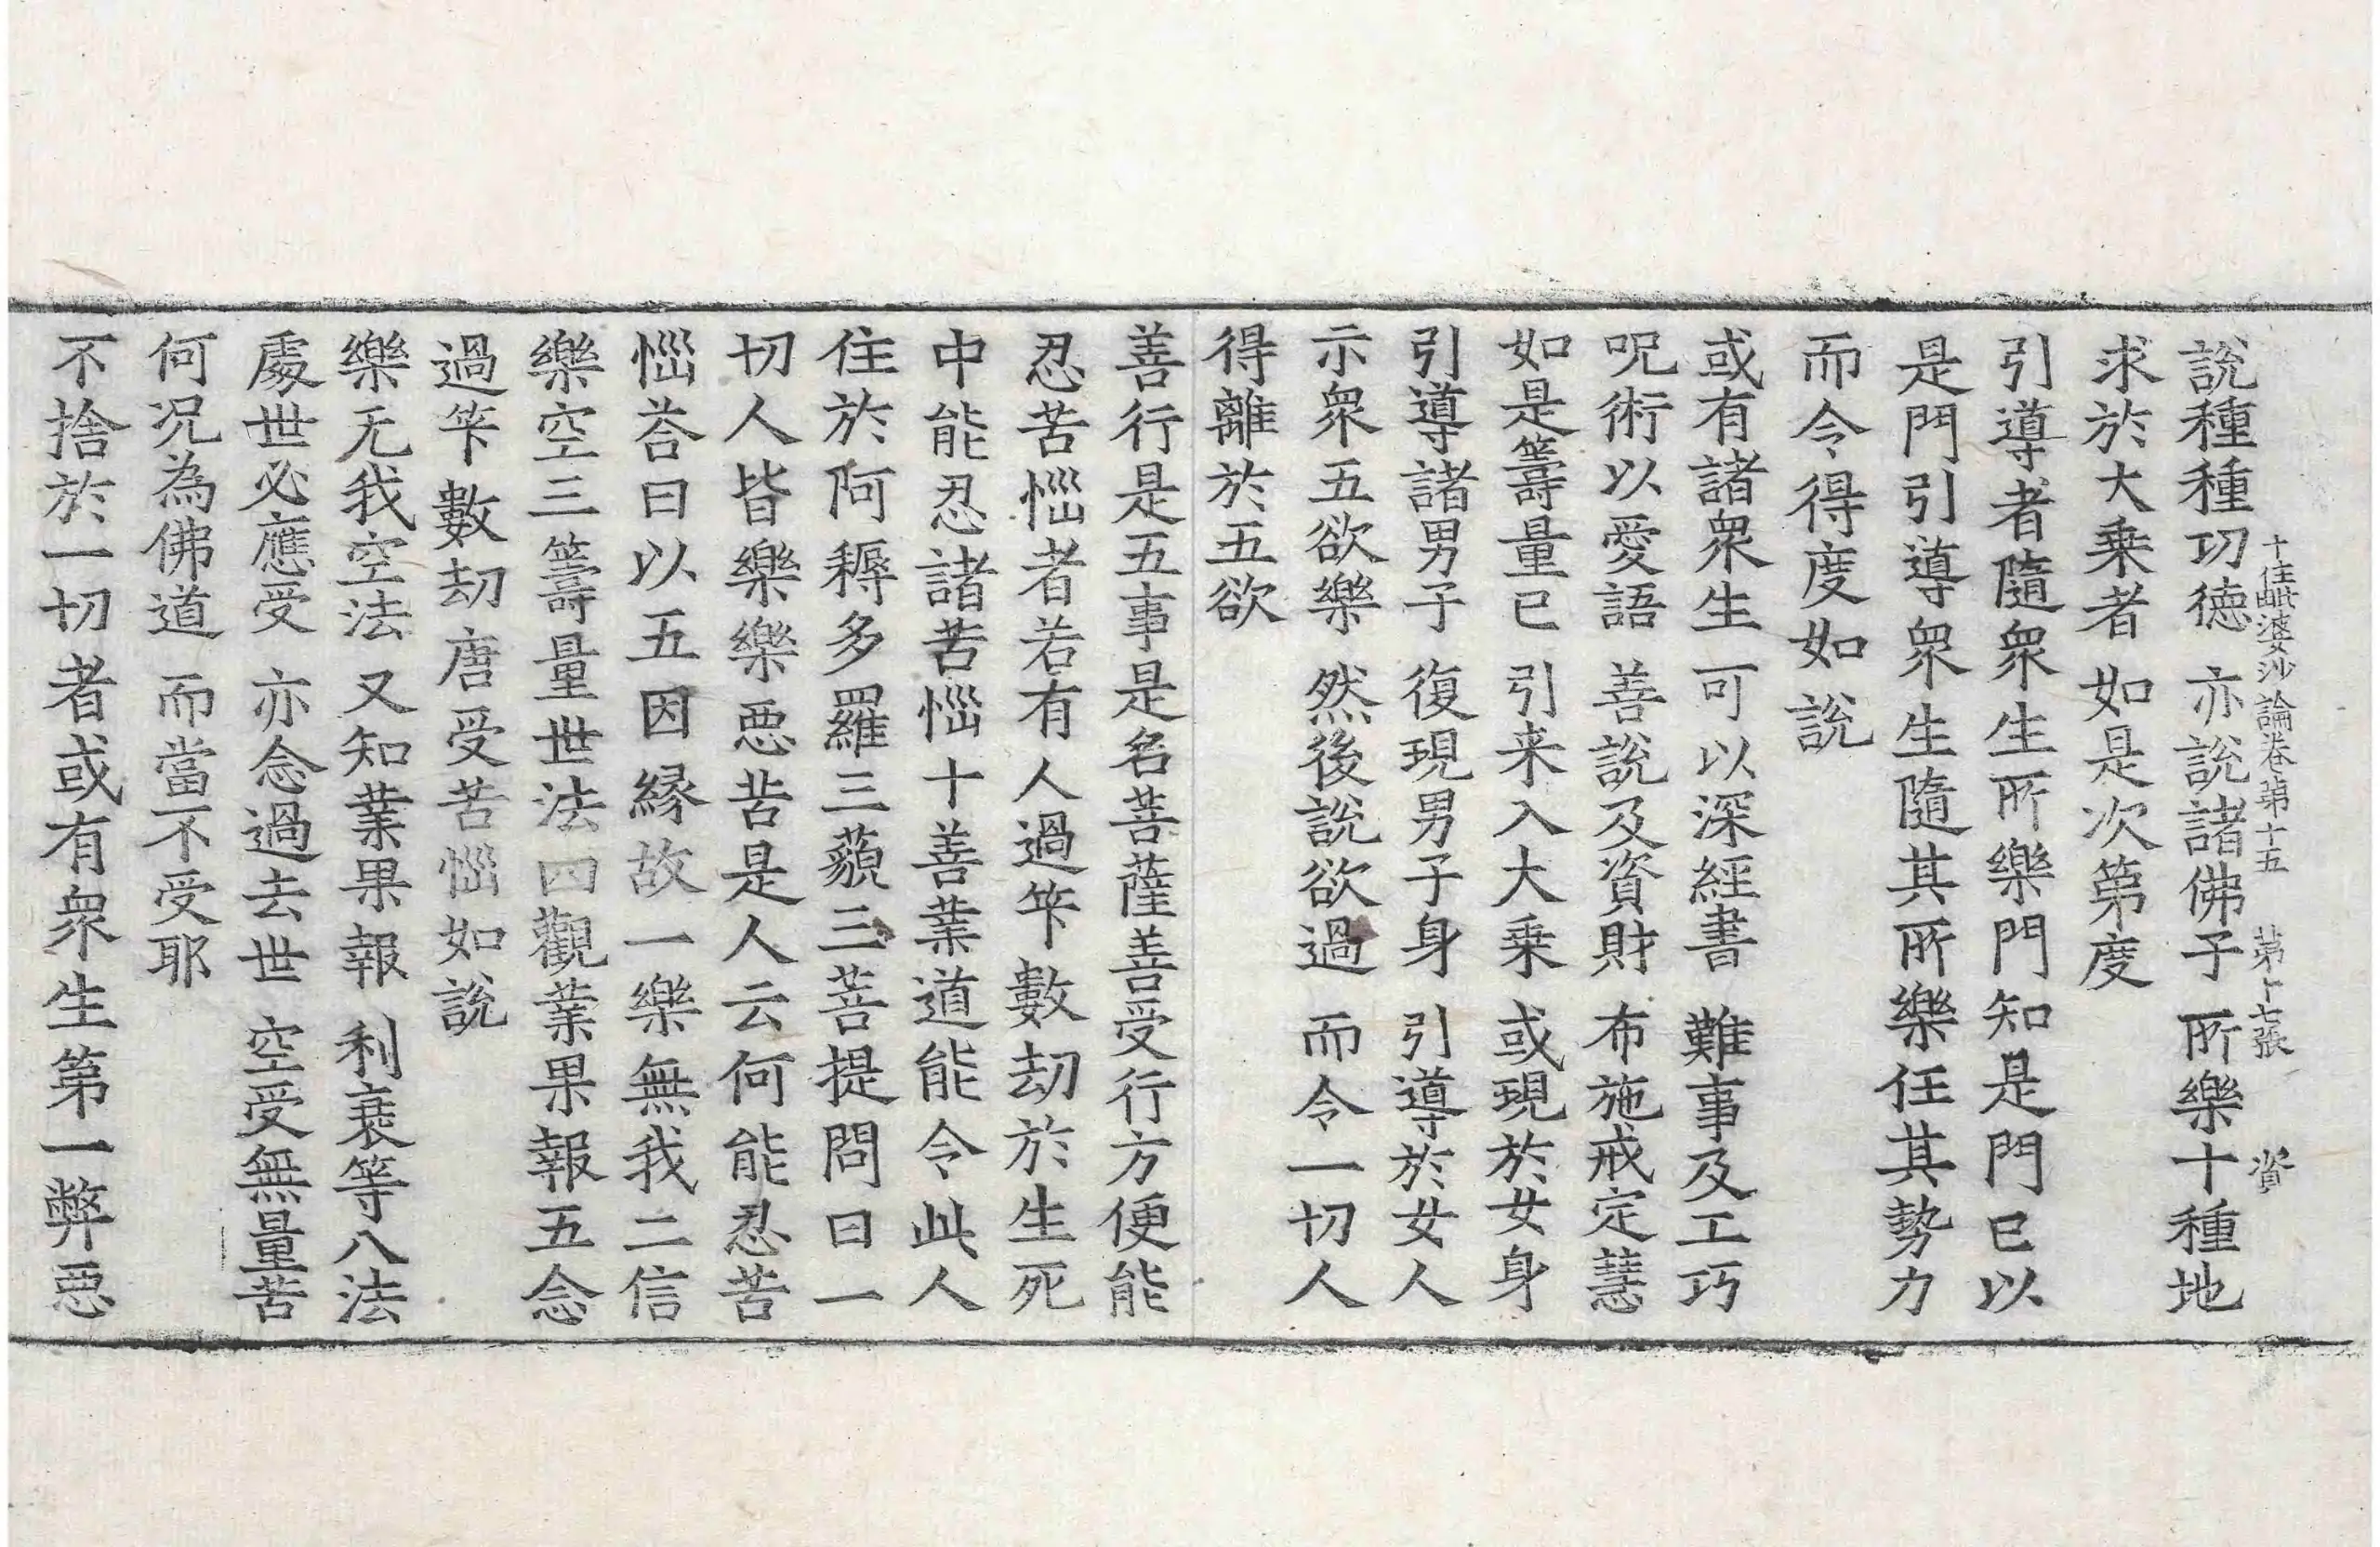 十住毗婆沙論卷第十五　第十七張　資
說種種功徳　亦說諸佛子　所樂十種地
求於大乗者　如是次第度
引導者隨衆生所樂門知是門已以
是門引導衆生隨其所樂任其勢力
而令得度如說
或有諸衆生　可以深經書　難事及工巧
呪術以愛語　善說及資財　布施戒定慧
如是籌量已　引来入大乗　或現於女身
引導諸男子　復現男子身　引導於女人
示衆五欲樂　然後說欲過　而令一切人
得離於五欲
善行是五事是名菩薩善受行方便能
忍苦惱者若有人過筭數劫於生死
中能忍諸苦惱十善業道能令此人
住於阿耨多羅三藐三菩提問曰一
切人皆樂樂惡苦是人云何能忍苦
惱荅曰以五因縁故一樂無我二信
樂空三籌量世法四觀業果報五念
過筭數劫唐受苦惱如說
樂无我空法　又知業果報　利衰等八法
處世必應受　亦念過去世　空受無量苦
何况為佛道　而當不受耶
不捨於一切者或有衆生第一弊惡